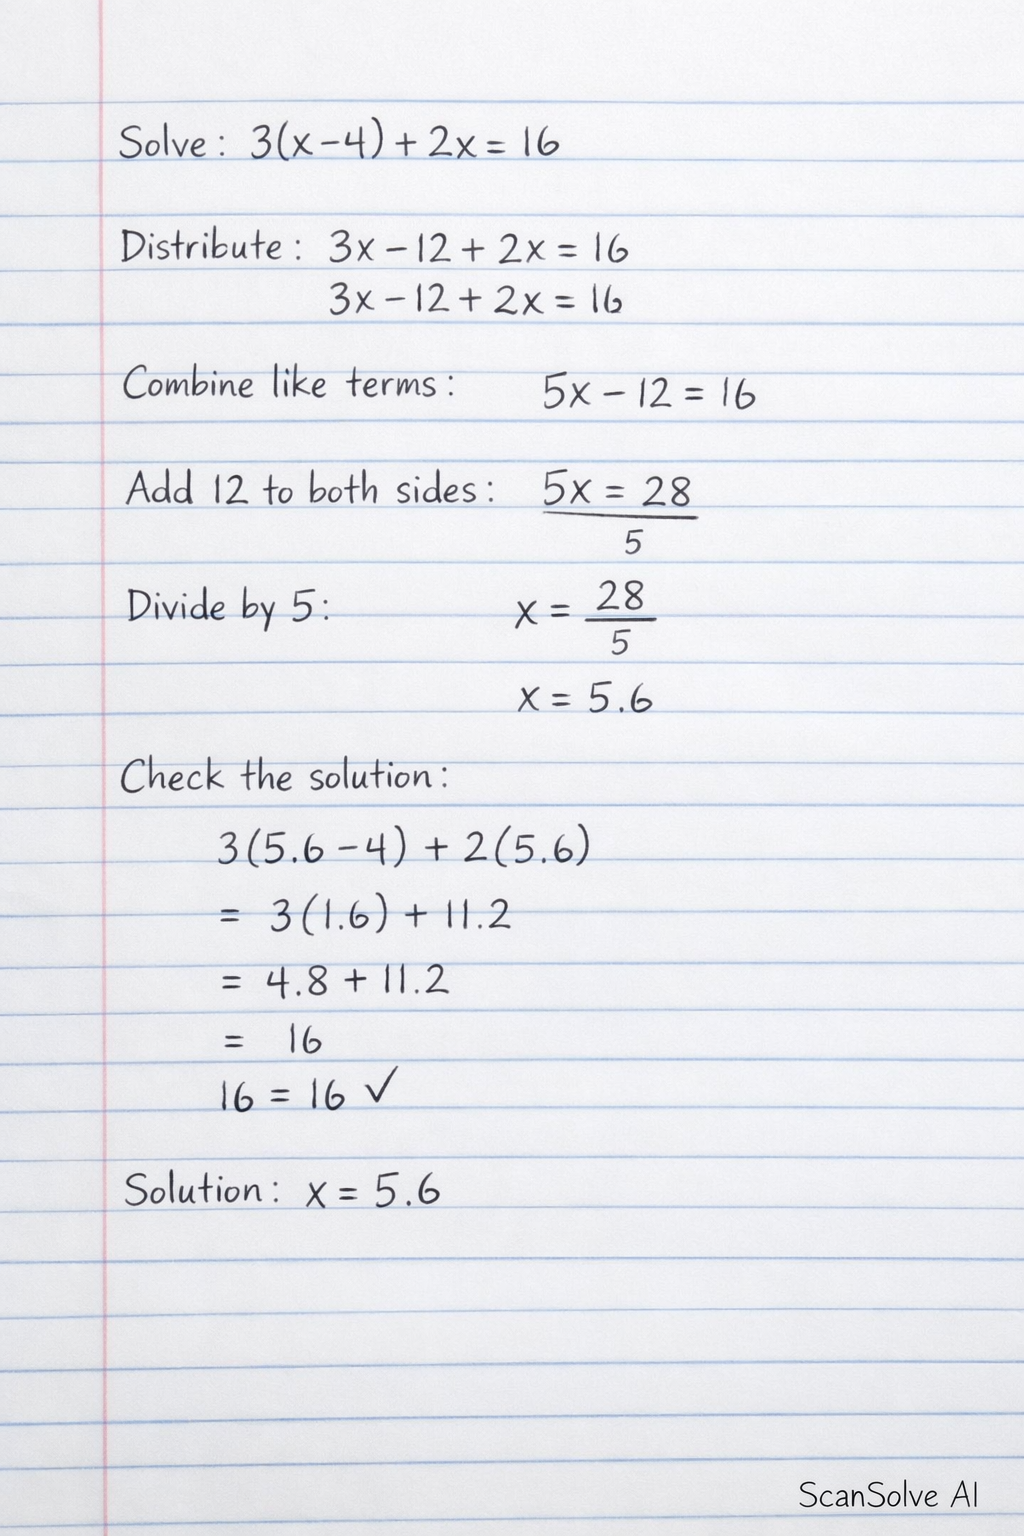 Solve: 3(x-4) + 2x = 16
Distribute: 3x - 12 + 2x = 16
3x - 12 + 2x = 16
Combine like terms: 5x - 12 = 16
Add 12 to both sides: 5x = 28
5
Divide by 5: x = 28
5
x = 5.6
Check the solution:
3(5.6 - 4) + 2(5.6)
= 3(1.6) + 11.2
= 4.8 + 11.2
= 16
16 = 16 ✓
Solution: x = 5.6
ScanSolve AI